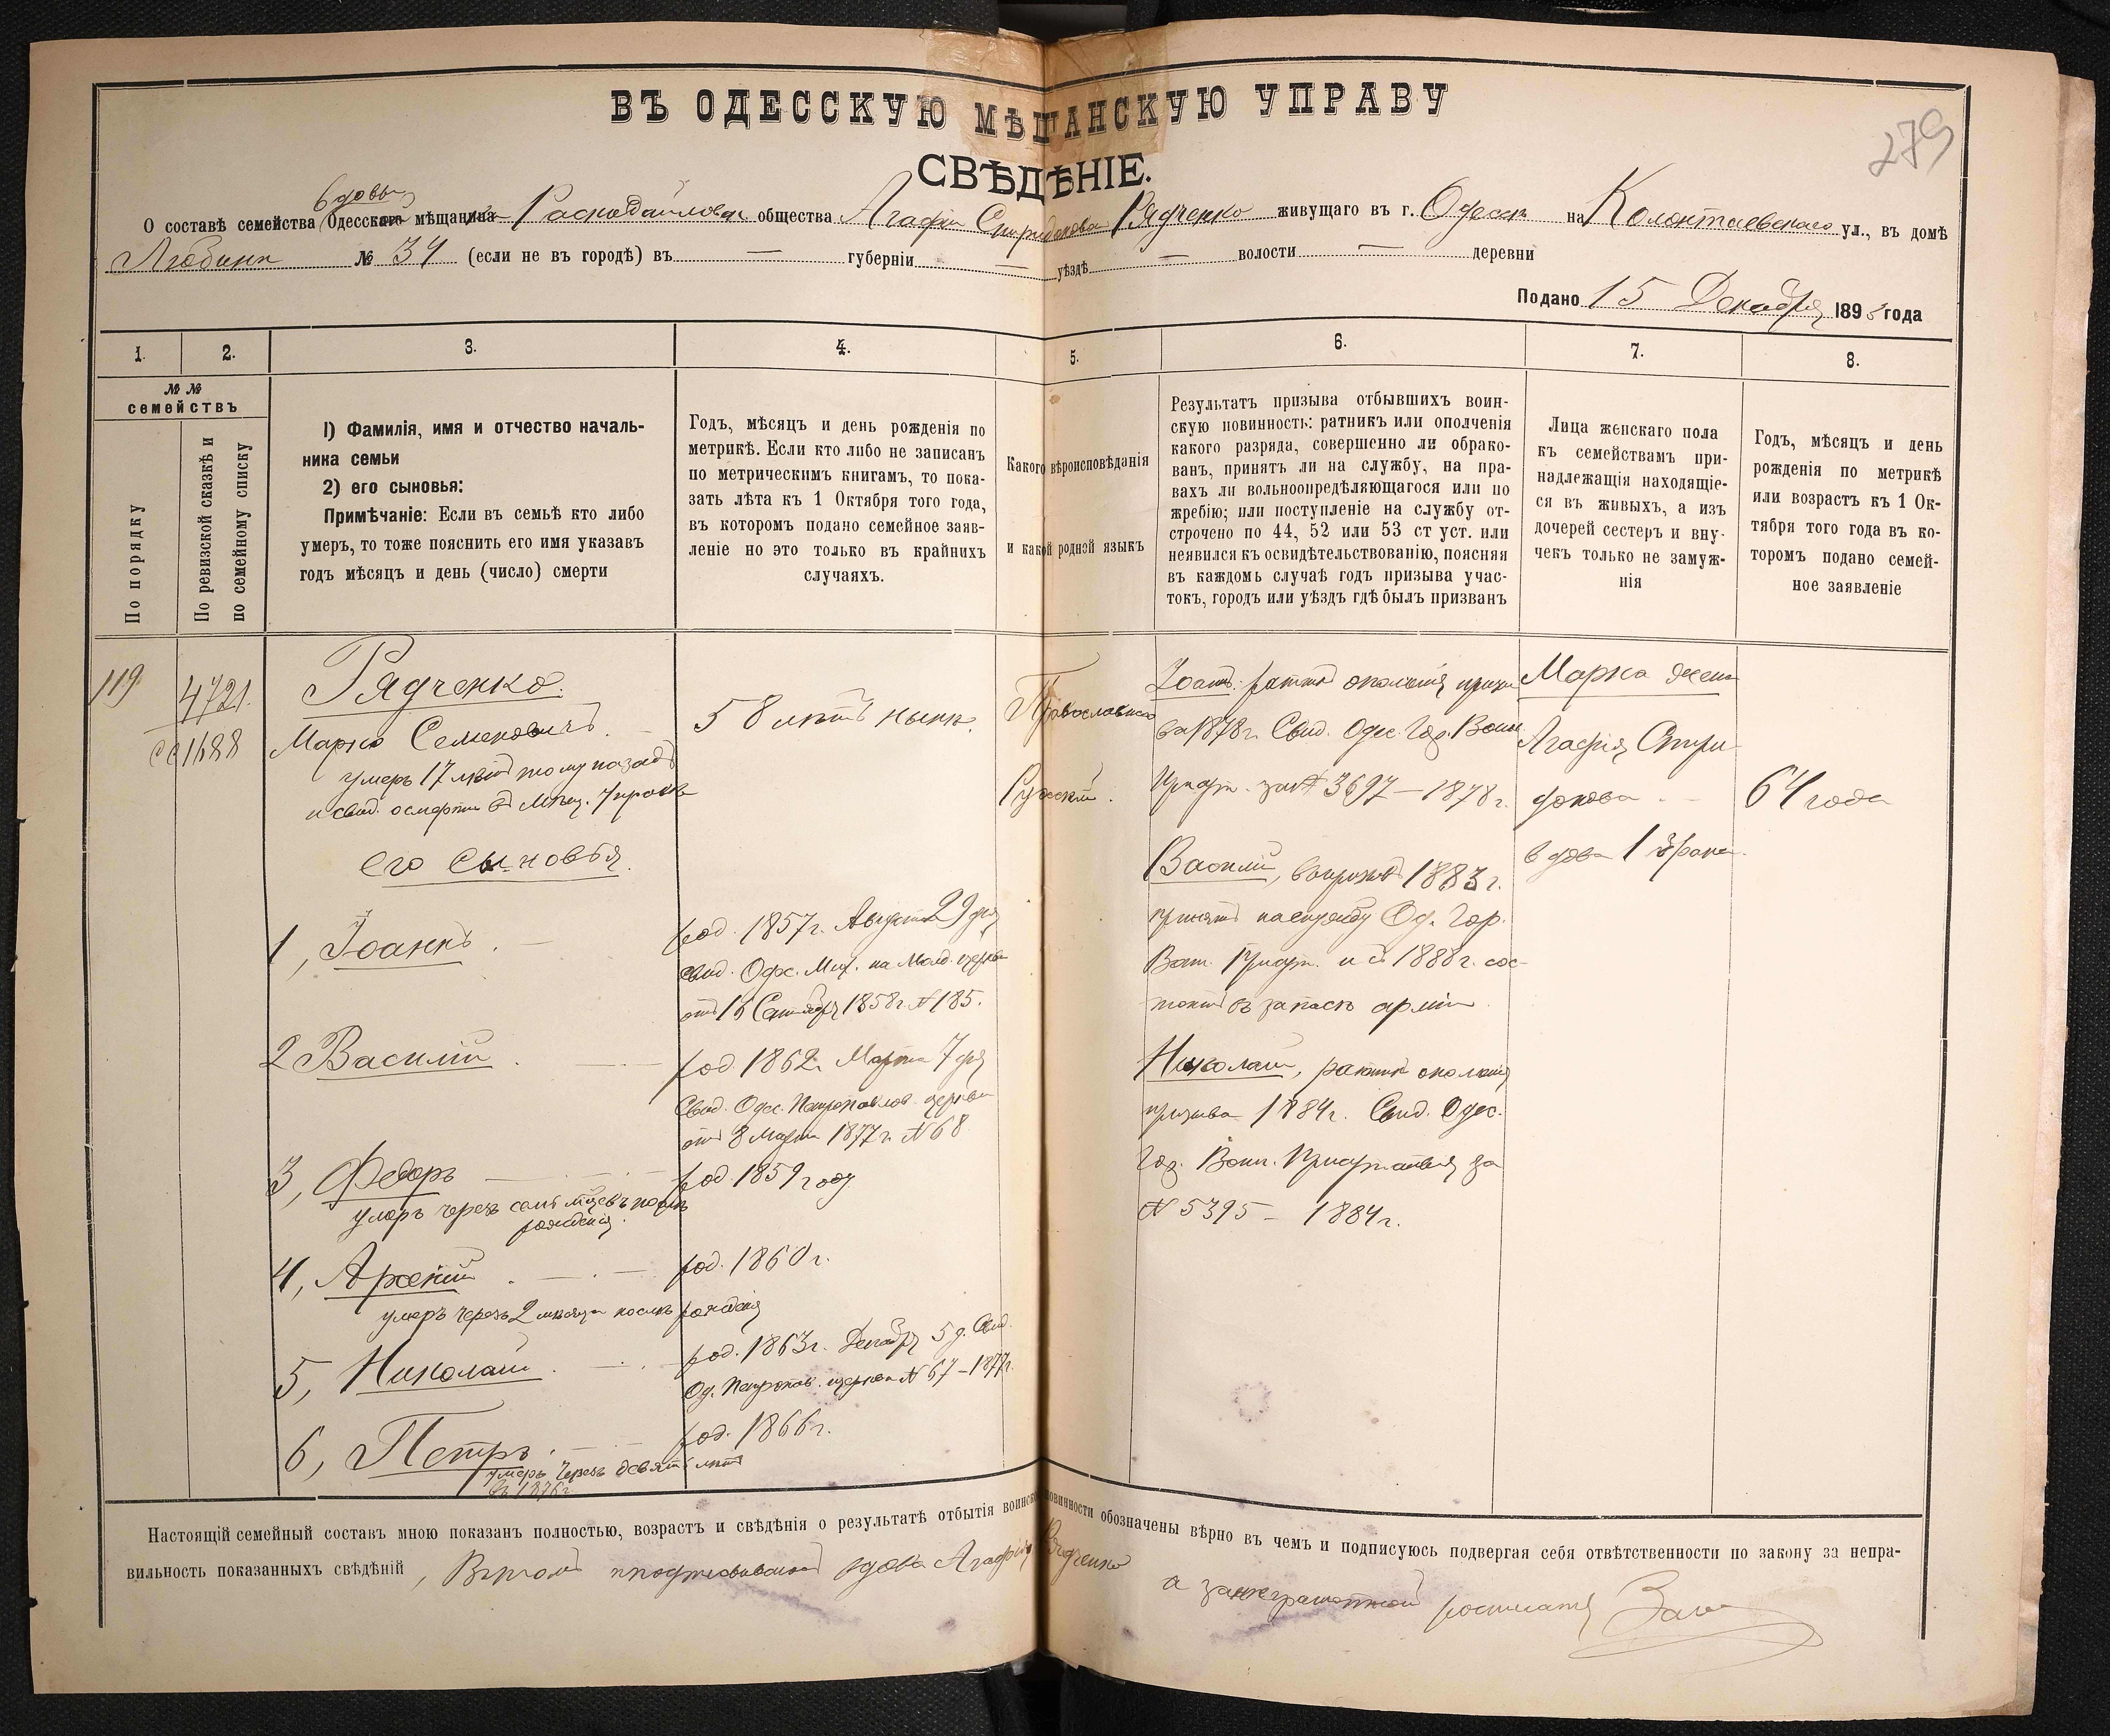 ВЪ ОДЕССКУЮ МѢЩАНСКУЮ УПРАВУ
279
СВѢДѢНІЕ.
вдовы
О составѣ семейства Одесскаго мѣщанина общества Агафіи Спиридоновы Рядченко живущаго въ г. Одессѣ на Колонтаевскаго ул., въ домѣ
№ 34 (если не въ городѣ) въ — губерніи — уѣздѣ — волости — деревни
Подано 15 Декабря 1893 года
1. 2. 3. 4. 5. 6. 7. 8.
№ №
семействъ
По порядку
По ревизской сказкѣ и
по семейному списку
1) Фамилія, имя и отчество началь-
ника семьи
2) его сыновья:
Примѣчаніе: Если въ семьѣ кто либо
умеръ, то тоже пояснить его имя указавъ
годъ мѣсяцъ и день (число) смерти
Годъ, мѣсяцъ и день рожденія по
метрикѣ. Если кто либо не записанъ
по метрическимъ книгамъ, то пока-
зать лѣта къ 1 Октября того года,
въ которомъ подано семейное заяв-
леніе но это только въ крайнихъ
случаяхъ.
Какого вѣроисповѣданія
и какой родной языкъ
Результатъ призыва отбывшихъ воин-
скую повинность: ратникъ или ополченія
какого разряда, совершенно ли обрако-
ванъ, принятъ ли на службу, на пра-
вахъ ли вольноопредѣляющагося или по
жребію; или поступленіе на службу от-
строчено по 44, 52 или 53 ст уст. или
неявился къ освидѣтельствованію, поясняя
въ каждомъ случаѣ годъ призыва учас-
токъ, городъ или уѣздъ гдѣ былъ призванъ
Лица женскаго пола
къ семействамъ при-
надлежащія находящіе-
ся въ живыхъ, а изъ
дочерей сестеръ и вну-
чекъ только не замуж-
нія
Годъ, мѣсяцъ и день
рожденія по метрикѣ
или возрастъ къ 1 Ок-
тября того года въ ко-
торомъ подано семей-
ное заявленіе
119.
4721.
1688
Рядченко.
Марко Семеновичъ.
умеръ 17 лѣтъ тому назадъ
и свид. о смерти въ Мѣщ. Управѣ
58 лѣтъ нынѣ.
Православнаго
Русскій.
его сыновья.
1, Іоаннъ.
род. 1857 г. Августа 29 дня
свид. Одес. Мих. на Молд. церкви
отъ 15 Сентября 1858 г. № 185.
2 Василій.
род. 1862 г. Марта 7 дня
Свид. Одес. Петропавлов. церкви
отъ 8 Марта 1877 г. № 68
3, Федоръ
род. 1859 году
умеръ черезъ семь м-цевъ послѣ
рожденія.
4, Арсеній.
род. 1860 г.
умеръ черезъ 2 мѣсяца послѣ рожденія
5, Николай.
род. 1863 г. Декабря 5 д. Свид.
Од. Петропав. церкви № 67 – 1877 г.
6, Петръ.
род. 1866 г.
умеръ черезъ девять лѣтъ
въ 1876 г.
Іоаннъ: ратникъ ополченія призы-
ва 1878 г. Свид. Одес. Гор. Воин.
Присут. за № 3697 – 1878 г.
Василій, въ призывъ 1883 г.
принятъ на службу Од. Гор.
Воин. Присут. и съ 1888 г. сос-
тоитъ въ запасѣ арміи
Николай, ратник ополченія
призыва 1884 г. Свид. Одес.
Гор. Воин. Присутствія за
№ 5395 – 1884 г.
Марка жена
Агафія Спири-
донова.
вдова 1 брака.
64 года
Настоящій семейный составъ мною показанъ полностью, возрастъ и свѣдѣнія о результатѣ отбытія воинской повинности обозначены вѣрно въ чемъ и подписуюсь подвергая себя отвѣтственности по закону за непра-
вильность показанныхъ свѣдѣній, вдова Агафія Рядченко